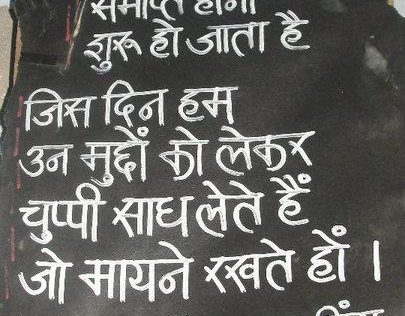 समाप्त होना
शुरू हो जाता है
जिस दिन हम
उन मुद्दों को लेकर
चुप्पी साध लेते हैं
जो मायने रखते हों ।